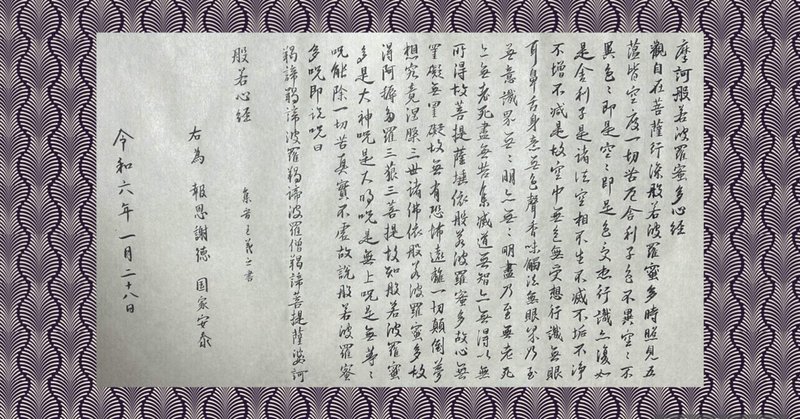 摩訶般若波羅蜜多心経
觀自在菩薩行深般若波羅蜜多時照見五
蘊皆空度一切苦厄舎利子色不異空〻不
異色〻即是空〻即是色受想行識亦復如
是舎利子是諸法空相不生不滅不垢不浄
不增不減是故空中無色無受想行識無眼
耳鼻舌身意無色聲香味觸法無眼界乃至
無意識界無〻明亦無〻明盡乃至無老死
亦無老死盡無苦集滅道無智亦無得以無
所得故菩提薩埵依般若波羅蜜多故心無
罣礙無罣礙故無有恐怖遠離一切顛倒夢
想究竟涅槃三世諸佛依般若波羅蜜多故
得阿耨多羅三藐三菩提故知般若波羅蜜
多是大神呪是大明呪是無上呪是無等〻
呪能除一切苦真實不虚故説般若波羅蜜
多呪即説呪曰
羯諦羯諦波羅羯諦波羅僧羯諦菩提薩婆訶
般若心経
集字王羲之書
右為 報恩謝徳 国家安泰
令和六年一月二十八日